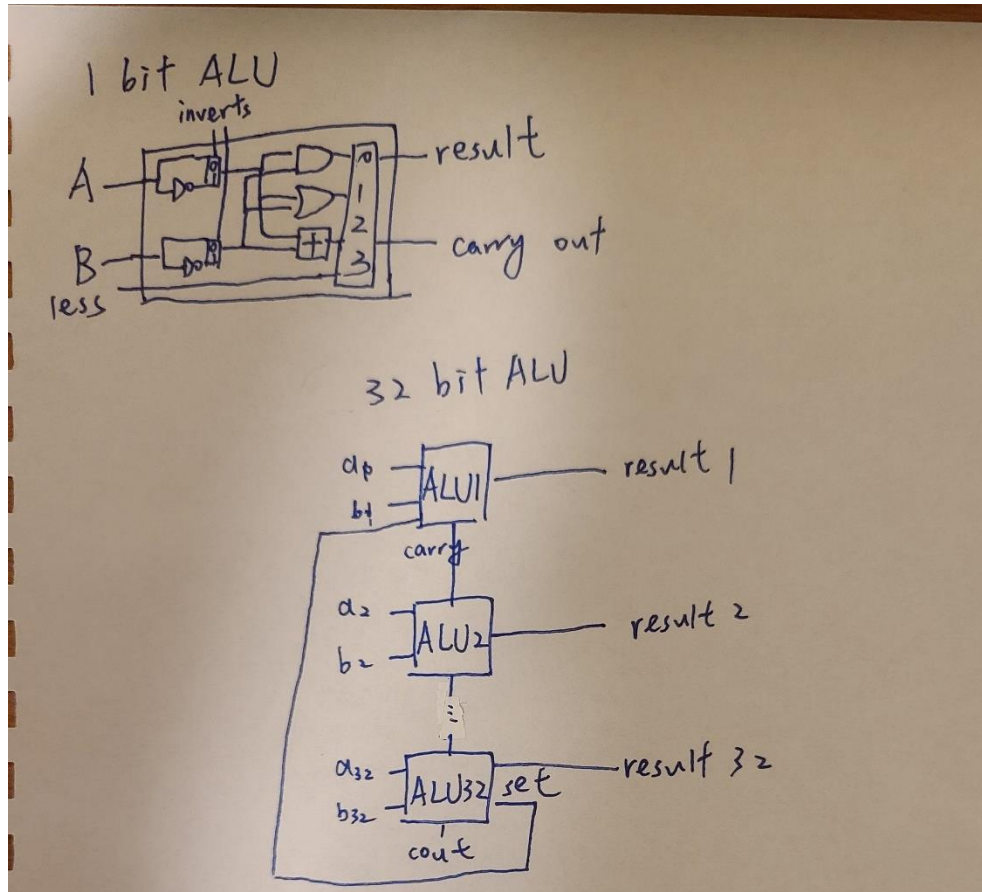 1 bit ALU
inverts
A
B
less
0
1
0
1
0
1
2
+
3
result
carry out
32 bit ALU
ALU1
b1
result 1
carry
a2
b2
ALU2
result 2
a32
b32
ALU32
set
result 32
cout